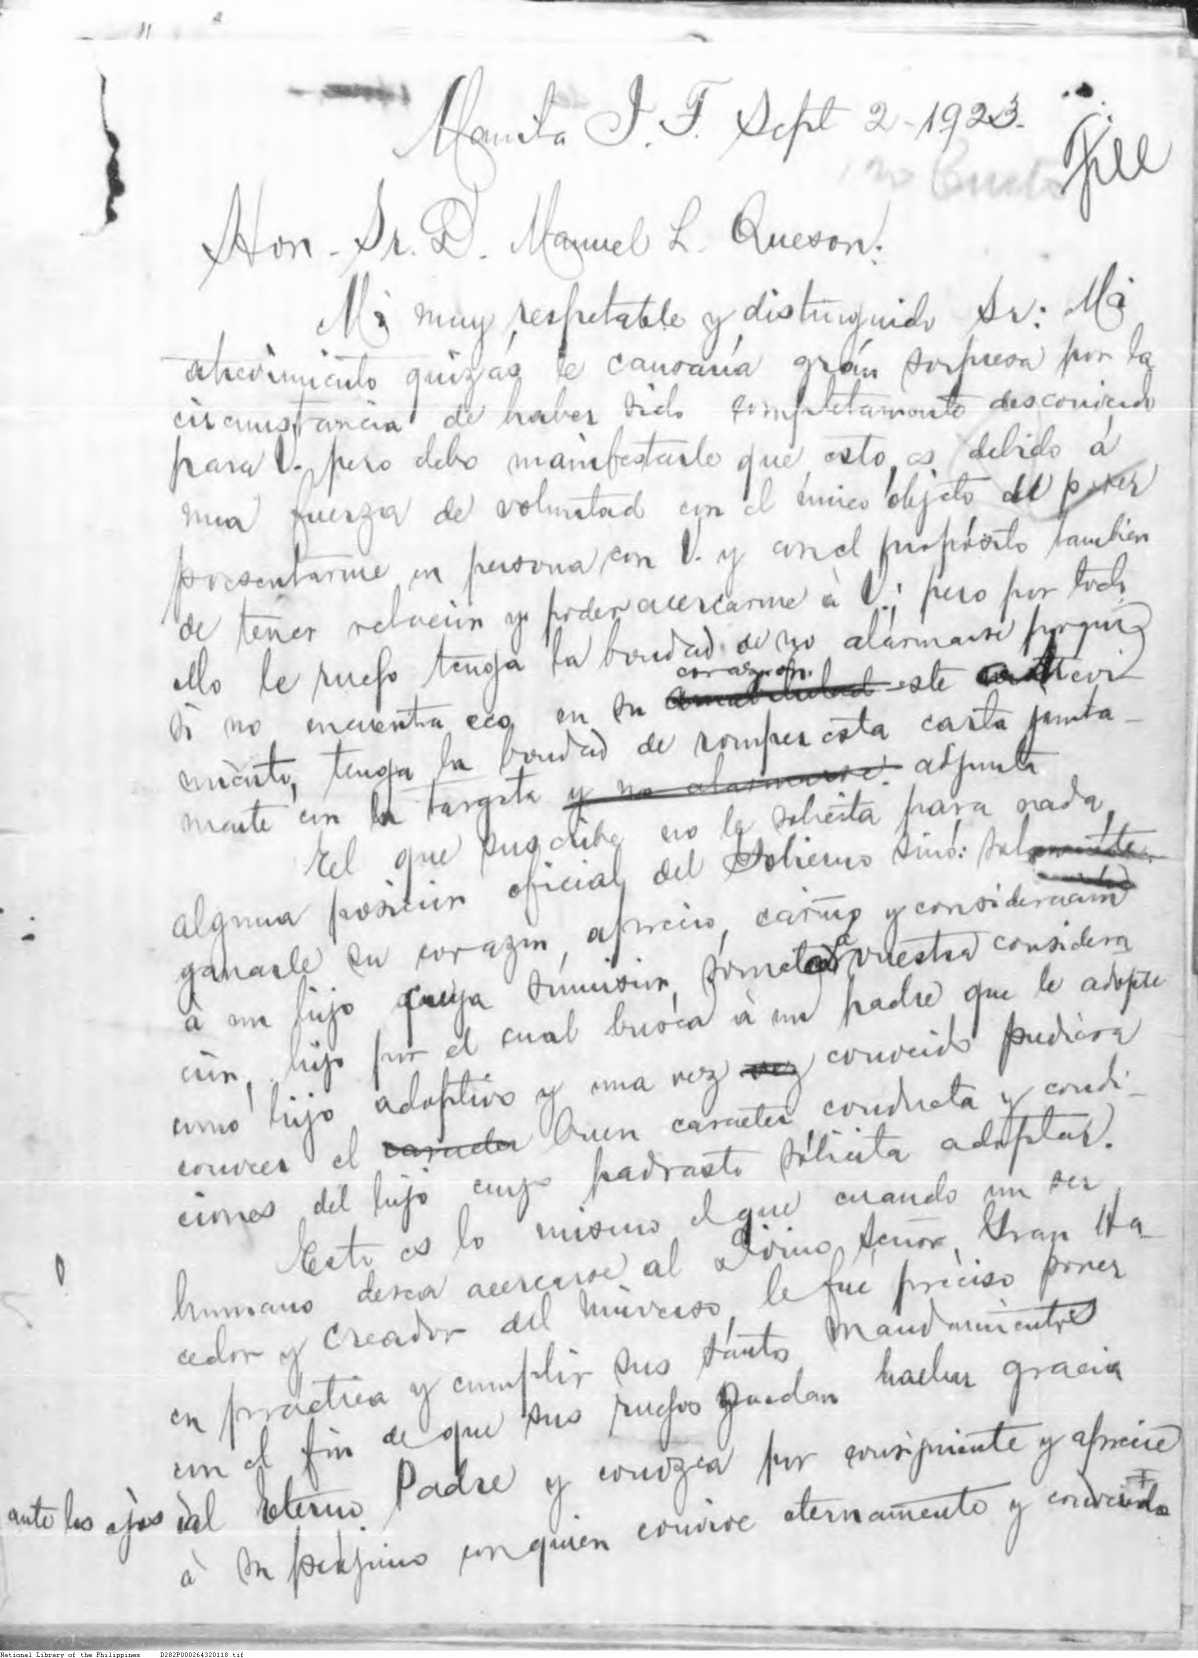 Manila I. F. Sept 2-1923.
File
Hon. Sr. D. Manuel L. Queson:
Mi muy respetable y distinguido Sr: Mi
atrevimiento quizás le causaría grán sorpresa por la
circunstancia de haber sido completamente desconocido
para V. pero debo manifestarle que esto es debido á
una fuerza de voluntad con el único objeto del poder
presentarme en persona con V. y con el propósito tambien
de tener relacion y poder acercarme á V.; pero por todo
ello le ruego tenga la bondad de no alarmarse porque
si no encuentra eco en su amabilidad corazon este atrevi-
miento, tenga la bondad de romper esta carta junta-
mente con la targeta y no alarmarse adjunta
El que suscribe no le solicita para nada
alguna posicion oficial del Gobierno sino: solamente
ganarle su corazon, aprecio, cariño y consideracion
á un hijo cuya sumision, somete á vuestra considera
cion, hijo por el cual busca á un padre que le adopte
como hijo adoptivo y una vez conocido pudiera
conocer el caracter buen caracter, conducta y condi-
ciones del hijo cuyo padrasto solicita adoptar.
Esto es lo mismo el que cuando un ser
humano desea acercarse al Divino Señor, Gran Ha-
cedor y Creador del universo, le fué preciso poner
en practica y cumplir sus santos mandamientos
con el fin de que sus ruegos puedan hachar gracia
ante los ojos al Eterno Padre y conozca por consiguiente y aprecie
á su prójimo con quien convive eternamente y conociendo
National Library of the Philippines D282P000264320118.tif